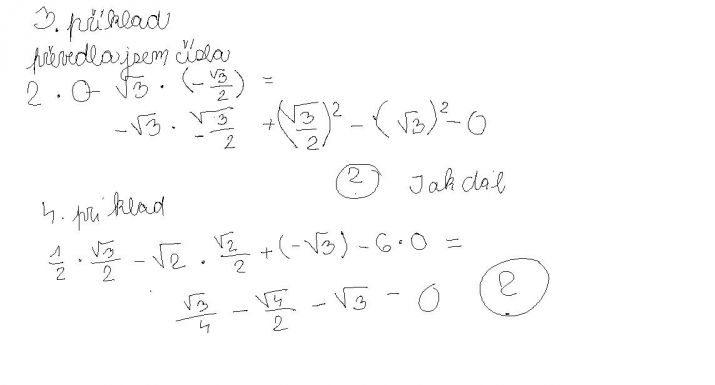 3. příklad
převedla jsem čísla
2 · 0 - √3 · (-√3/2) =
-√3 · √3/-2 + (√3/2)² - (√3)² - 0
? Jak dál
4. příklad
1/2 · √3/2 - √2 · √2/2 + (-√3) - 6 · 0 =
√3/4 - √4/2 - √3 - 0 ?